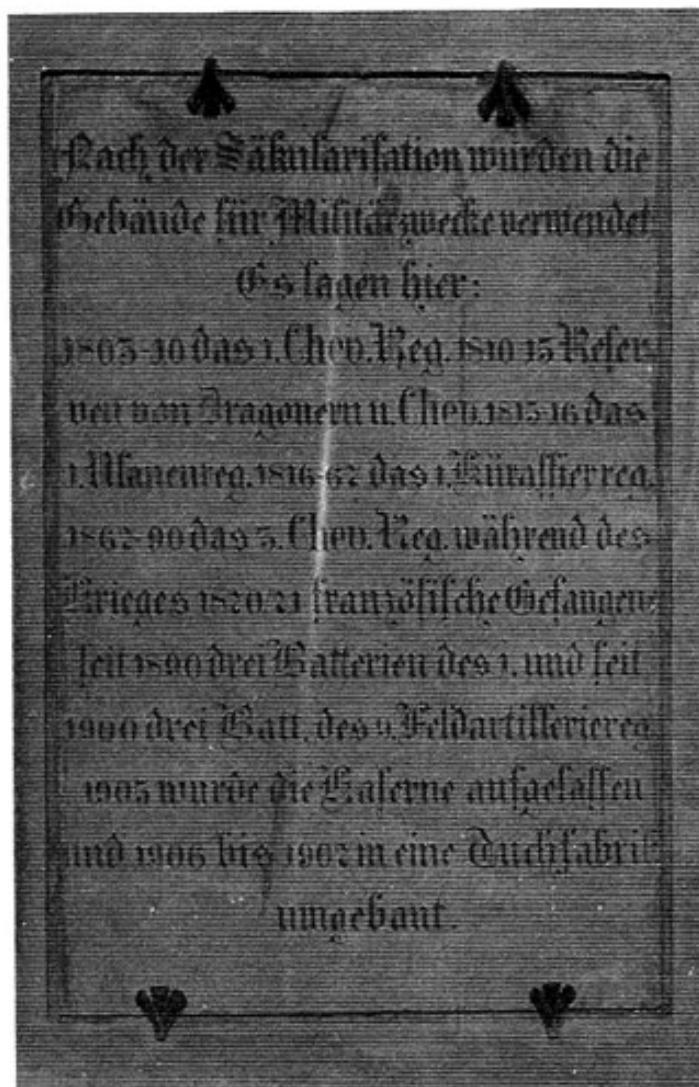 Nach der Säkularisation wurden die
Gebäude für Militärzwecke verwendet
Es lagen hier:
1803-10 das 1. Chev. Reg. 1810-15 Reser-
ven von Dragonern u. Chev. 1815-16 das
1. Ulanenreg. 1816-62 das 1. Kürassierreg.
1862-90 das 3. Chev. Reg. während des
Krieges 1870/71 französische Gefangene
seit 1890 drei Batterien des 1. und seit
1900 drei Batt. des 9. Feldartilleriereg.
1905 wurde die Kaserne aufgelassen
und 1906 bis 1907 in eine Tuchfabrik
umgebaut.